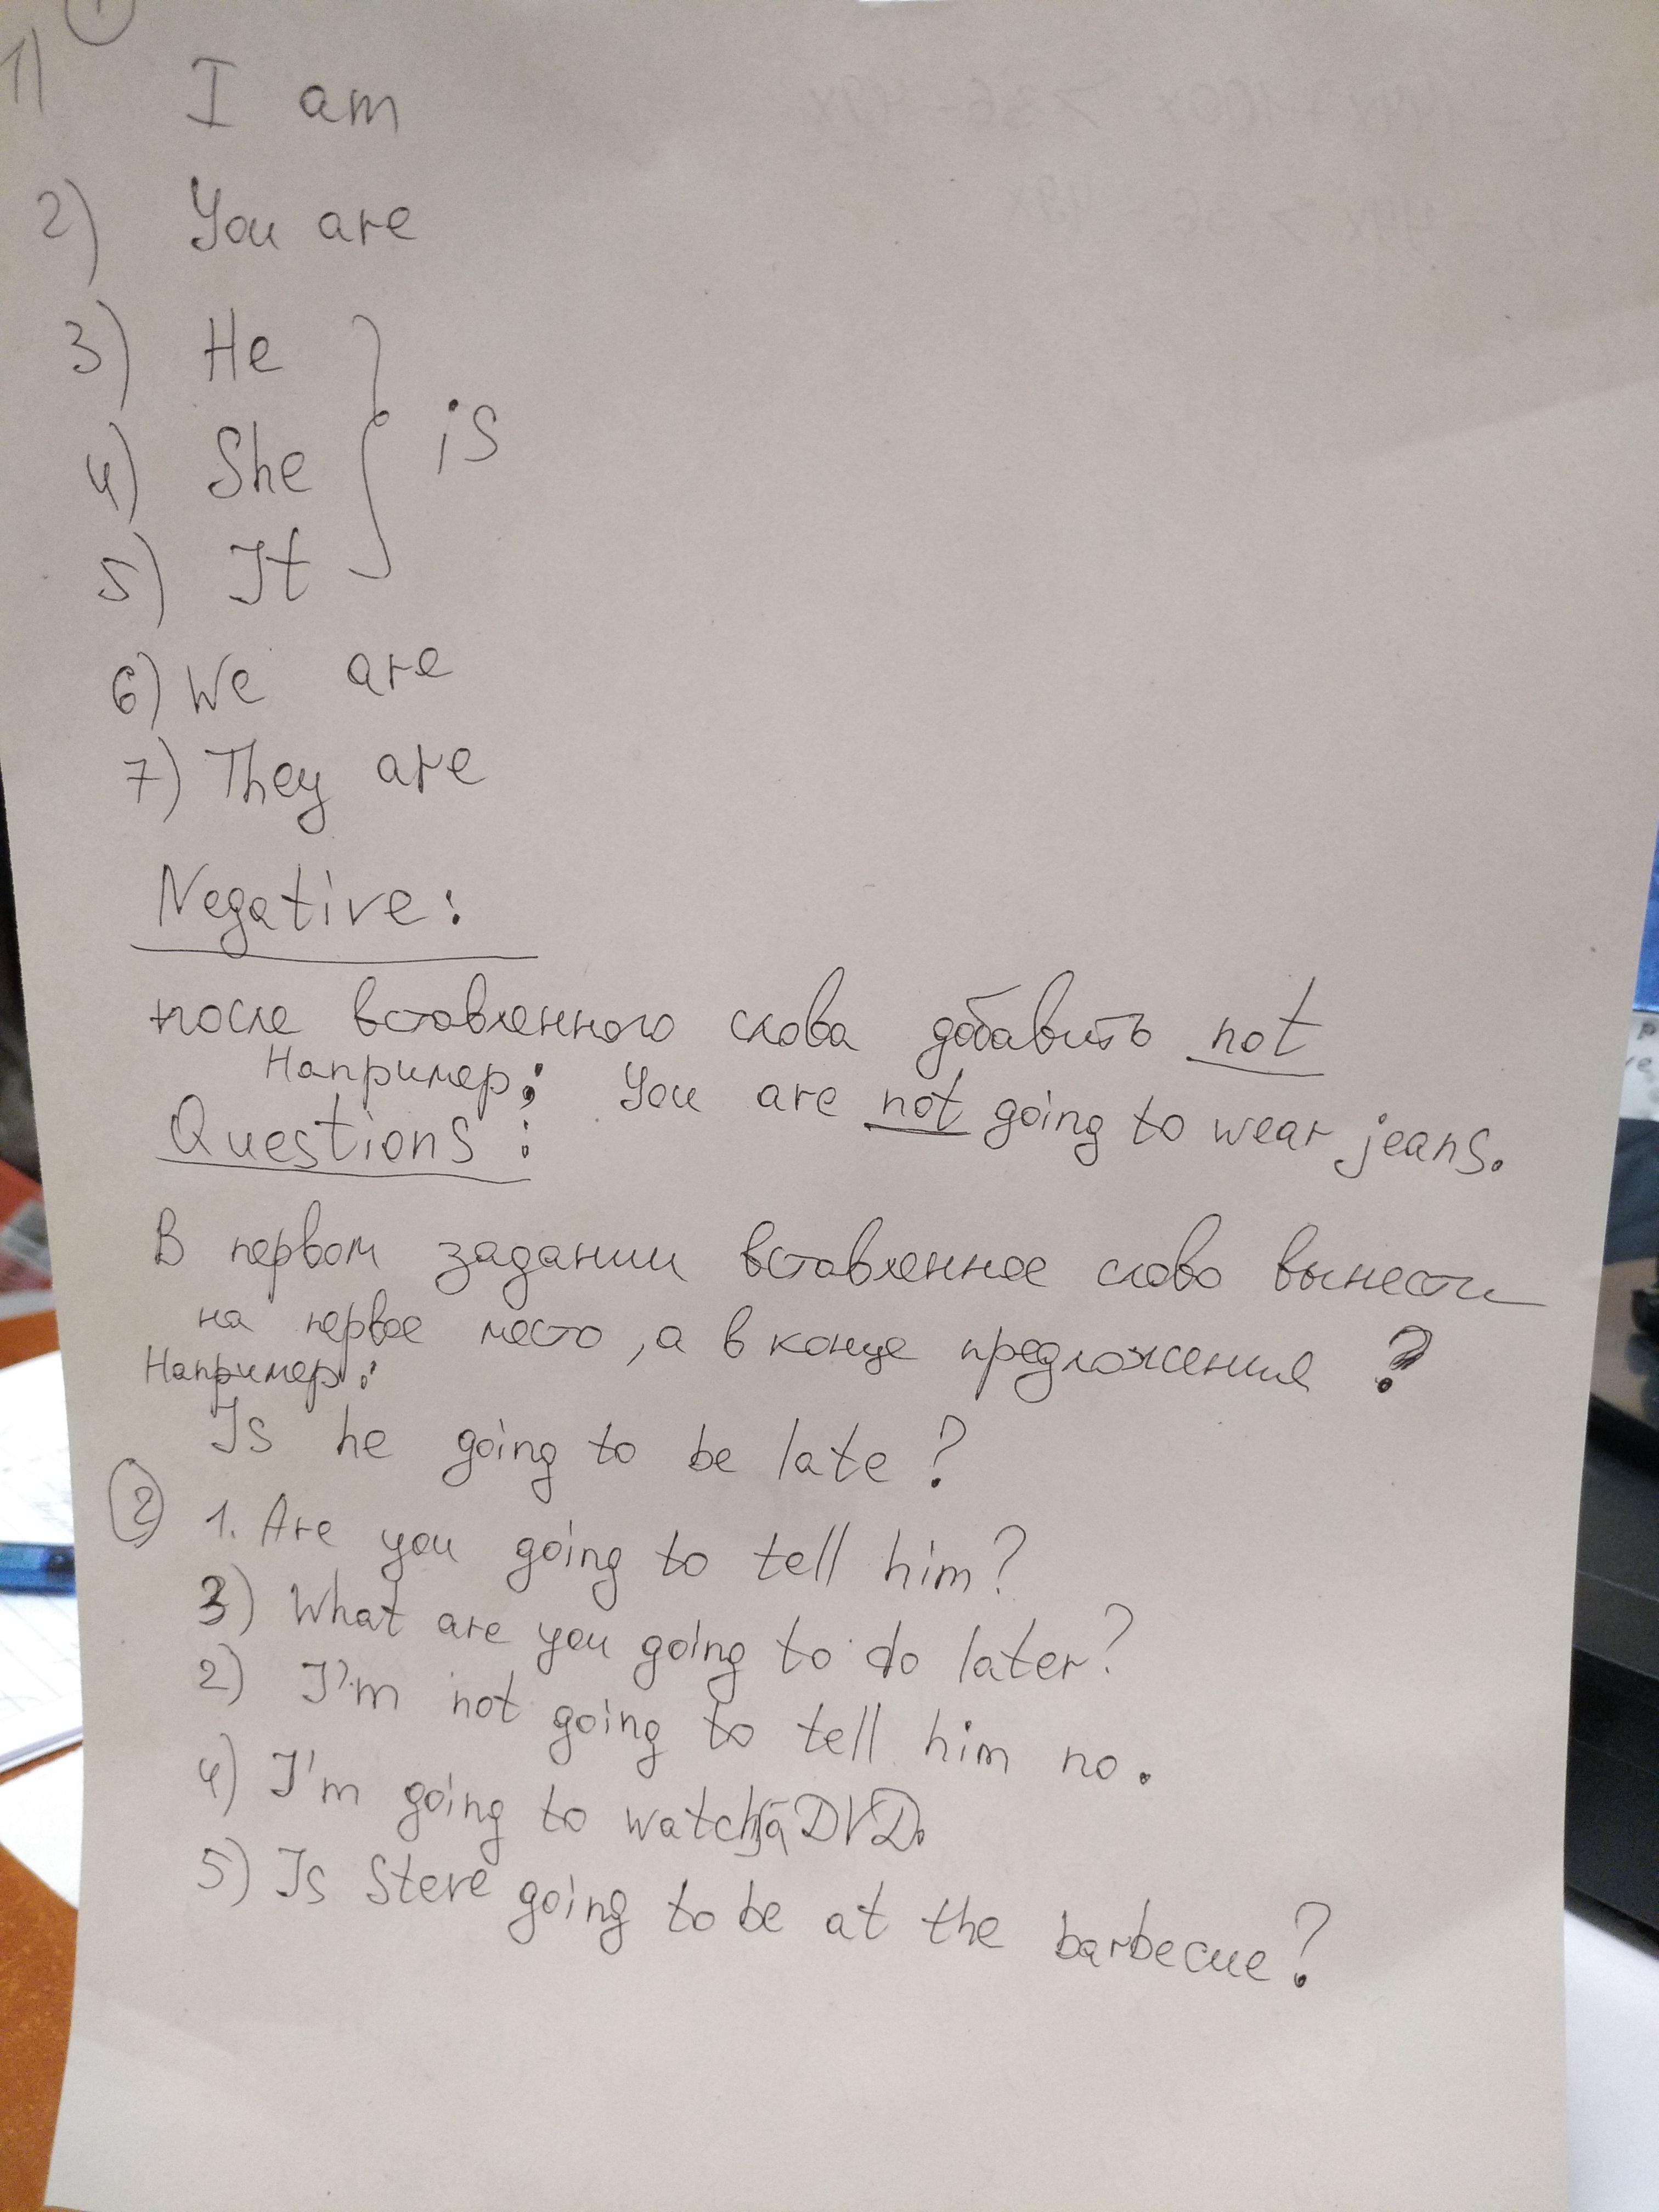 1
1) I am
2) You are
3) He
4) She } is
5) It
6) We are
7) They are
Negative:
после вставленного слова добавить not
Например: You are not going to wear jeans.
Questions:
В первом задании вставленное слово вынести
на первое место, а в конце предложения ?
Например:
Is he going to be late?
2 1. Are you going to tell him?
3) What are you going to do later?
2) I'm not going to tell him no.
4) I'm going to watch a DVD.
5) Is Steve going to be at the barbecue?